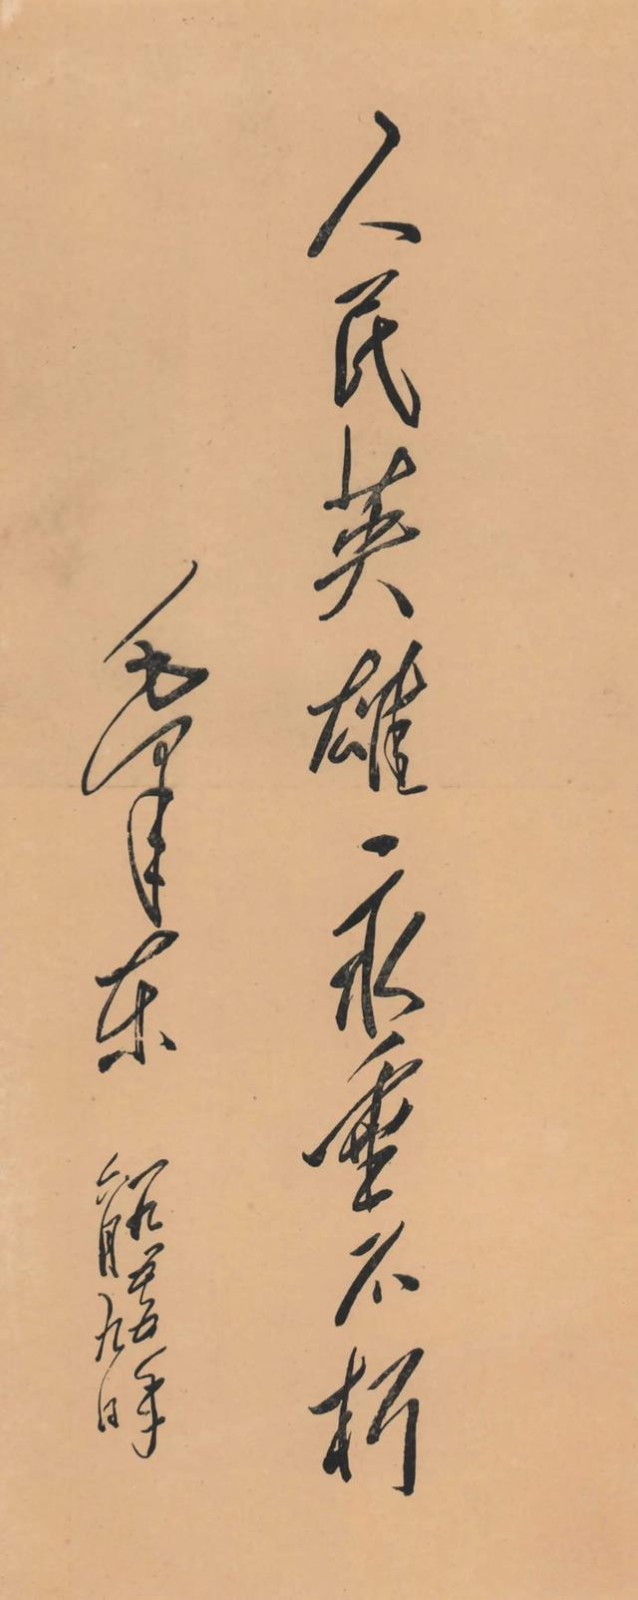 人民英雄永垂不朽
毛澤东
一九五五年
六月九日